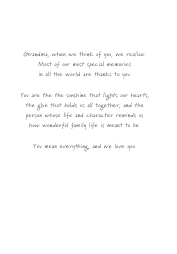 Grandma, when we think of you, we realize:
Most of our most special memories
in all the world are thanks to you.
You are the the sunshine that lights our hearts,
the glue that holds us all together, and the
person whose life and character reminds us
how wonderful family life is meant to be.
You mean everything, and we love you.